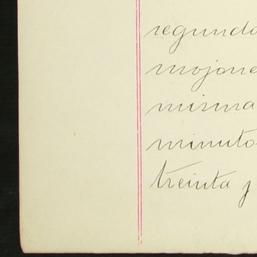 segundo
mojone
misma
minuto
treinta y